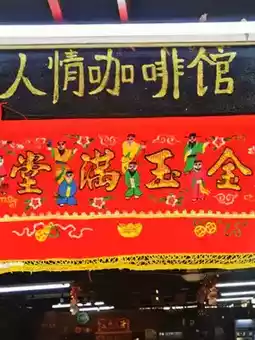 人情咖啡馆
堂满玉金